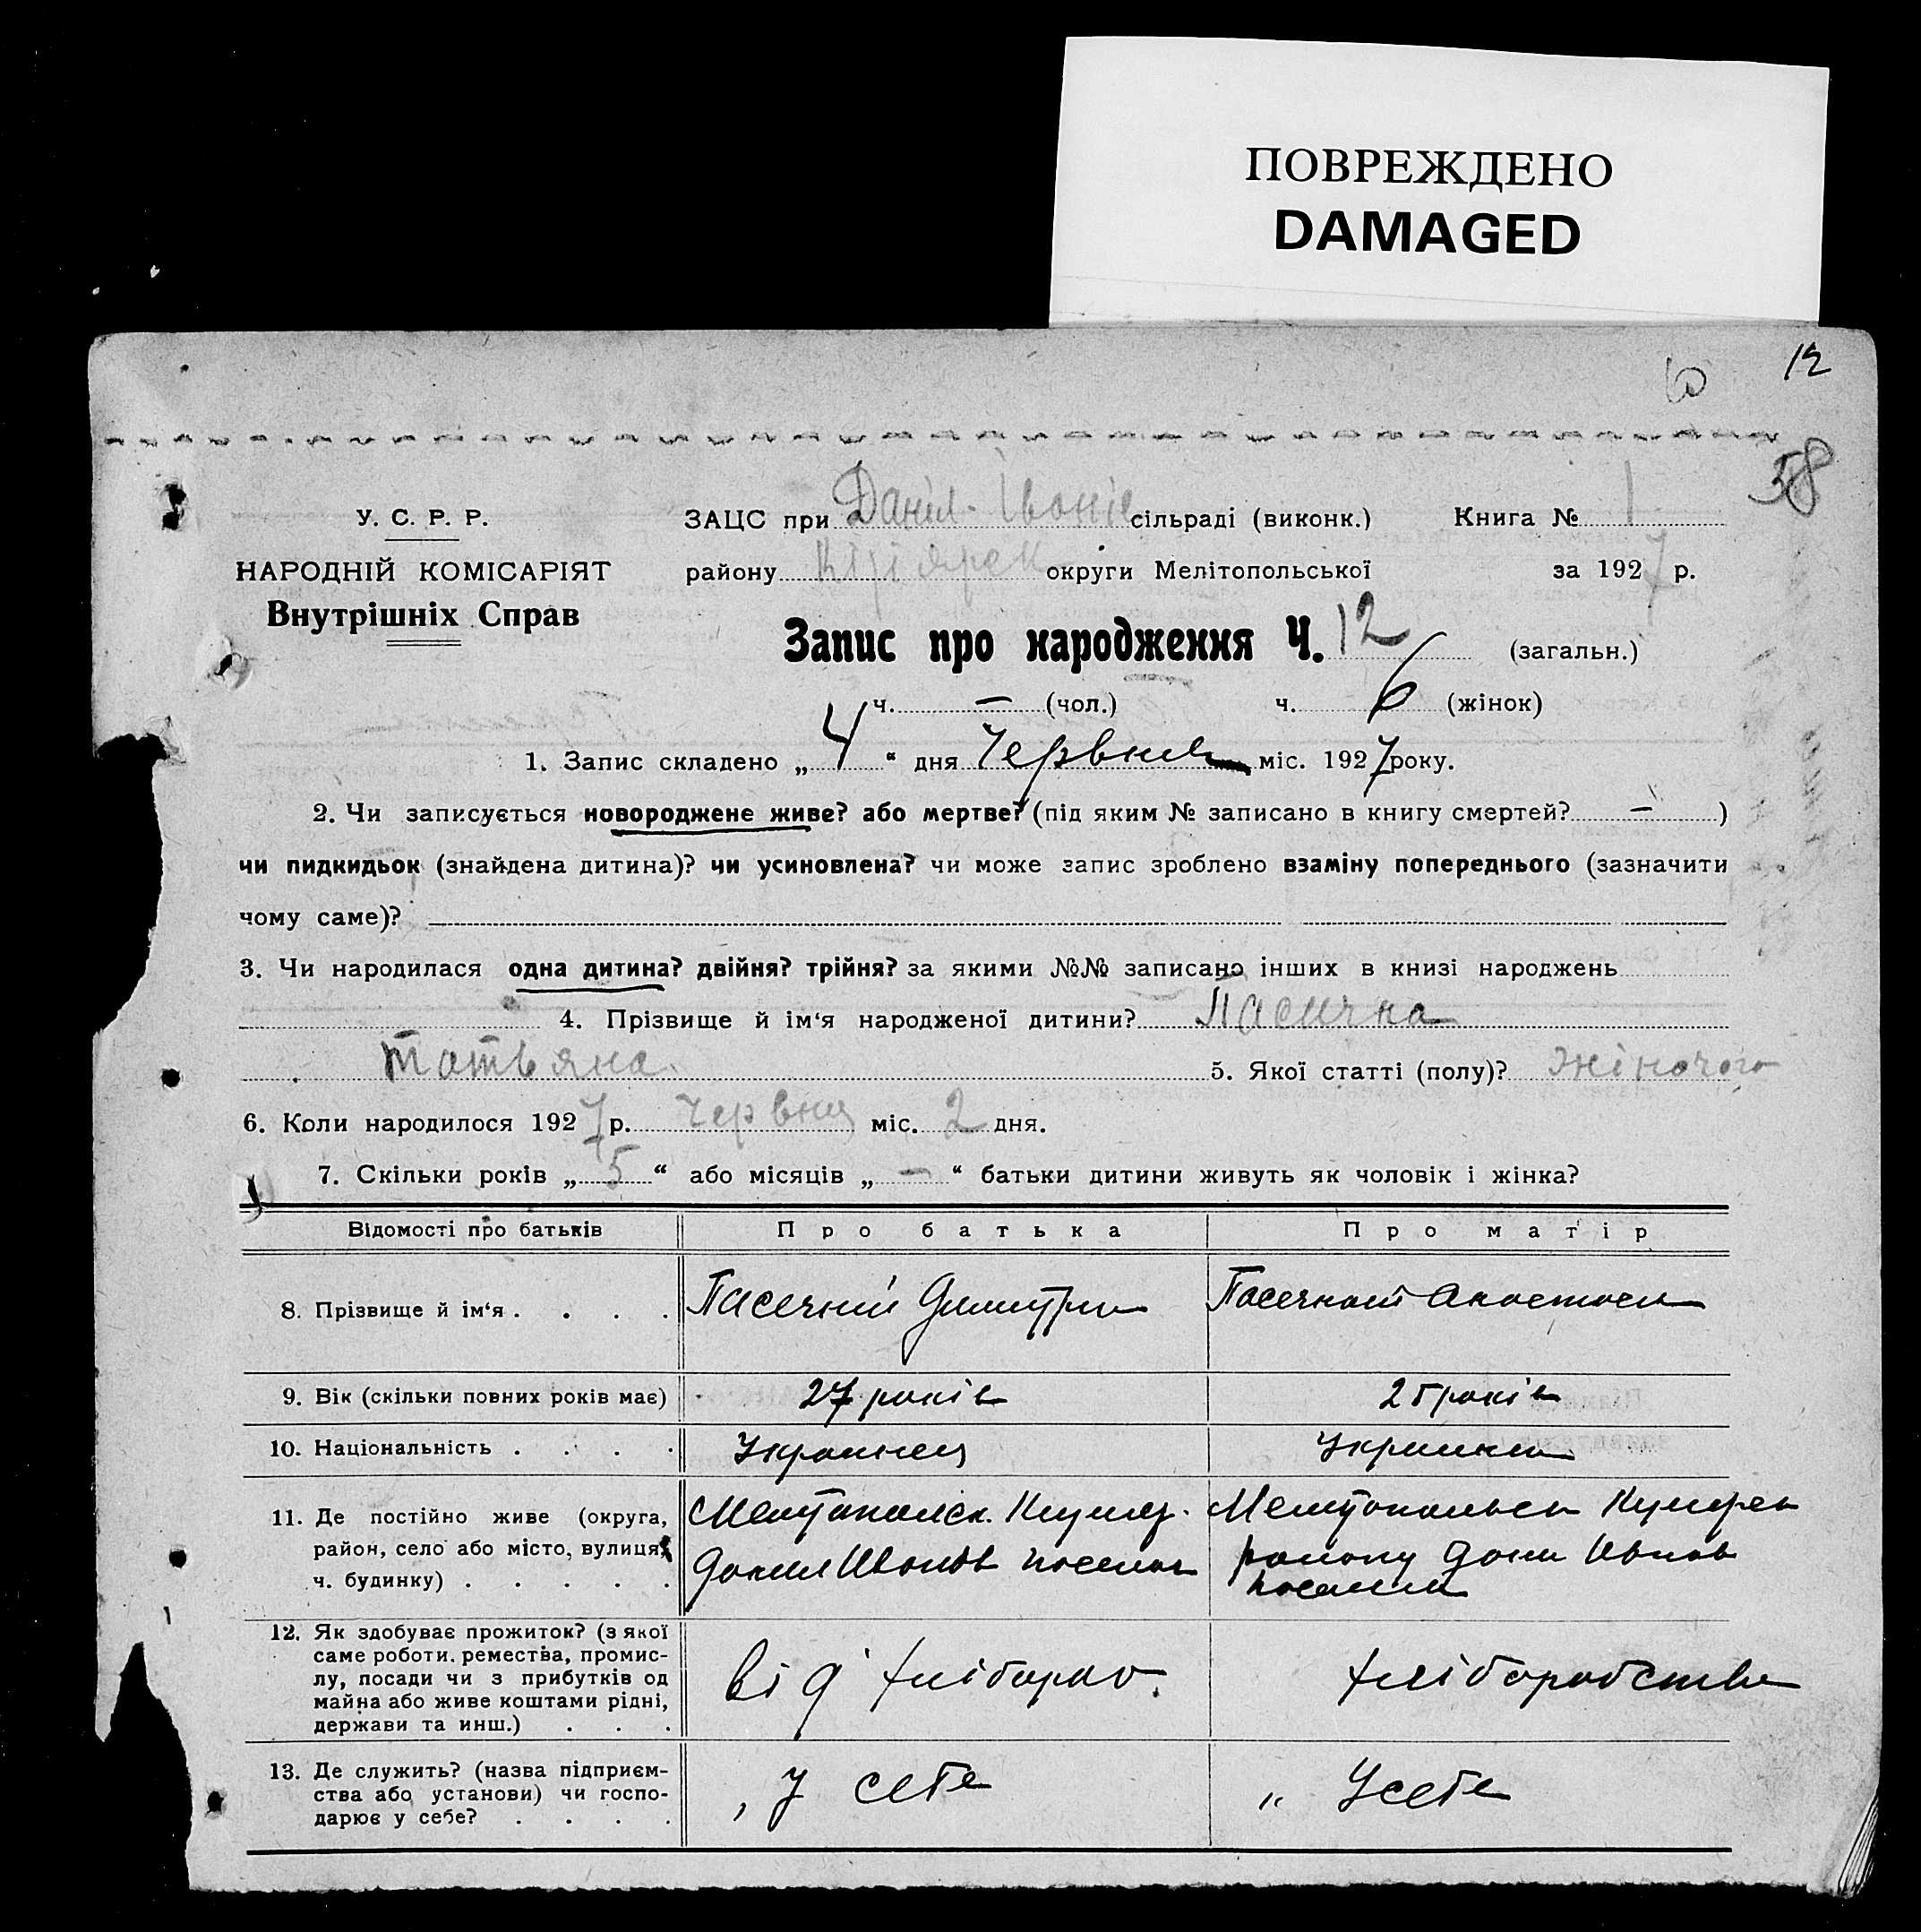 ПОВРЕЖДЕНО
DAMAGED
12
58
У. С. Р. Р.
НАРОДНІЙ КОМІСАРІЯТ
Внутрішніх Справ
ЗАЦС при Даніл-Івонів сільраді (виконк.) Книга № 1
району округи Мелітопольської за 1927 р.
Запис про народження Ч. 12 (загальн.)
ч. — (чол.) ч. 6 (жінок)
1. Запис складено „ 4 “ дня Червня міс. 1927 року.
2. Чи записується новороджене живе? або мертве? (під яким № записано в книгу смертей? — )
чи пидкидьок (знайдена дитина)? чи усиновлена? чи може запис зроблено взаміну попереднього (зазначити
чому саме)?
3. Чи народилася одна дитина? двійня? трійня? за якими №№ записано інших в книзі народжень
4. Прізвище й ім‘я народженої дитини? Пасична
Татьяна 5. Якої статті (полу)? жіночого
6. Коли народилося 1927 р. червня міс. 2 дня.
7. Скільки років „ 5 “ або місяців „ — “ батьки дитини живуть як чоловік і жінка?
Відомості про батьків Про батька Про матір
8. Прізвище й ім‘я . . . . Пасечний Димитри Пасечной Анастаси
9. Вік (скільки повних років має) 27 років 25 років
10. Національність . . . . Украинец Украинка
11. Де постійно живе (округа,
район, село або місто, вулиця,
ч. будинку) . . . . .
Мелитопольск.
Данил Ивонов поселок
Мелитопольск
району Данил Ивнов
поселок
12. Як здобуває прожиток? (з якої
саме роботи. ремества, промис-
лу, посади чи з прибутків од
майна або живе коштами рідні,
держави та инш.) . . .
від хліборо. хліборобства
13. Де служить? (назва підприєм-
ства або установи) чи госпо-
дарює у себе? . . . .
У себе " У себе